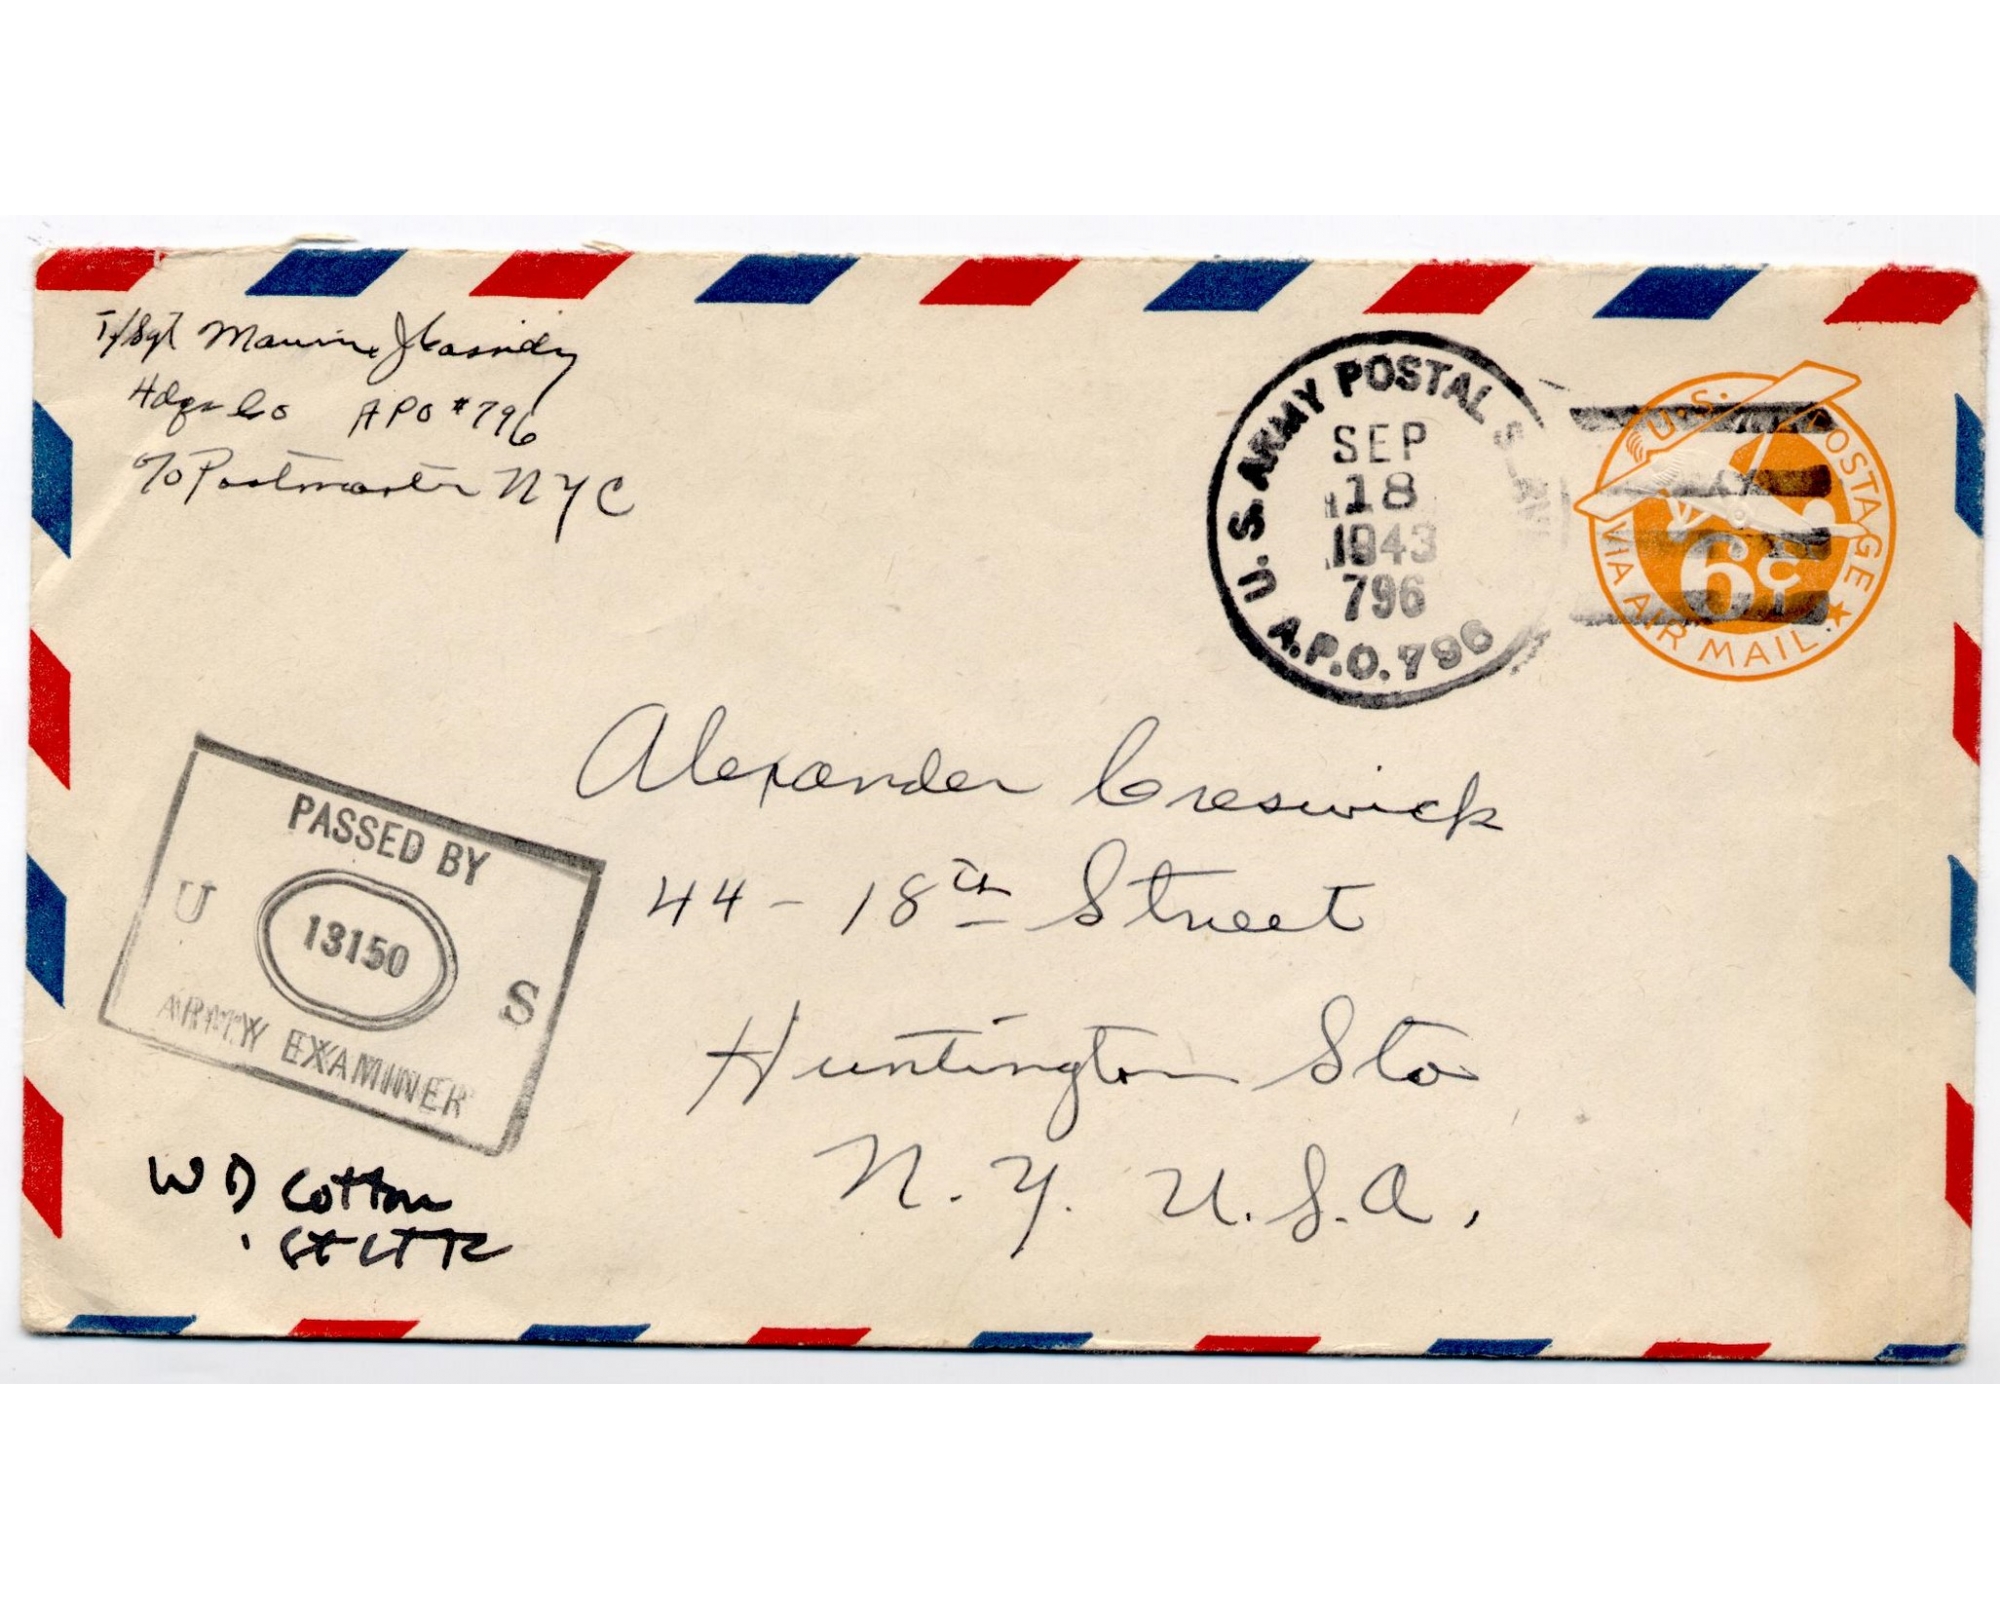 T/Sgt Maurice J Cassidy
Hdqs Co APO #796
c/o Postmaster NYC
U.S. ARMY POSTAL
SEP
18
1943
796
A.P.O. 796
U.S. POSTAGE
6c
VIA AIR MAIL
PASSED BY
U 13150 S
ARMY EXAMINER
Alexander Creswick
44 - 18th Street
Huntington Sta
N.Y. U.S.A.
W D Cotton